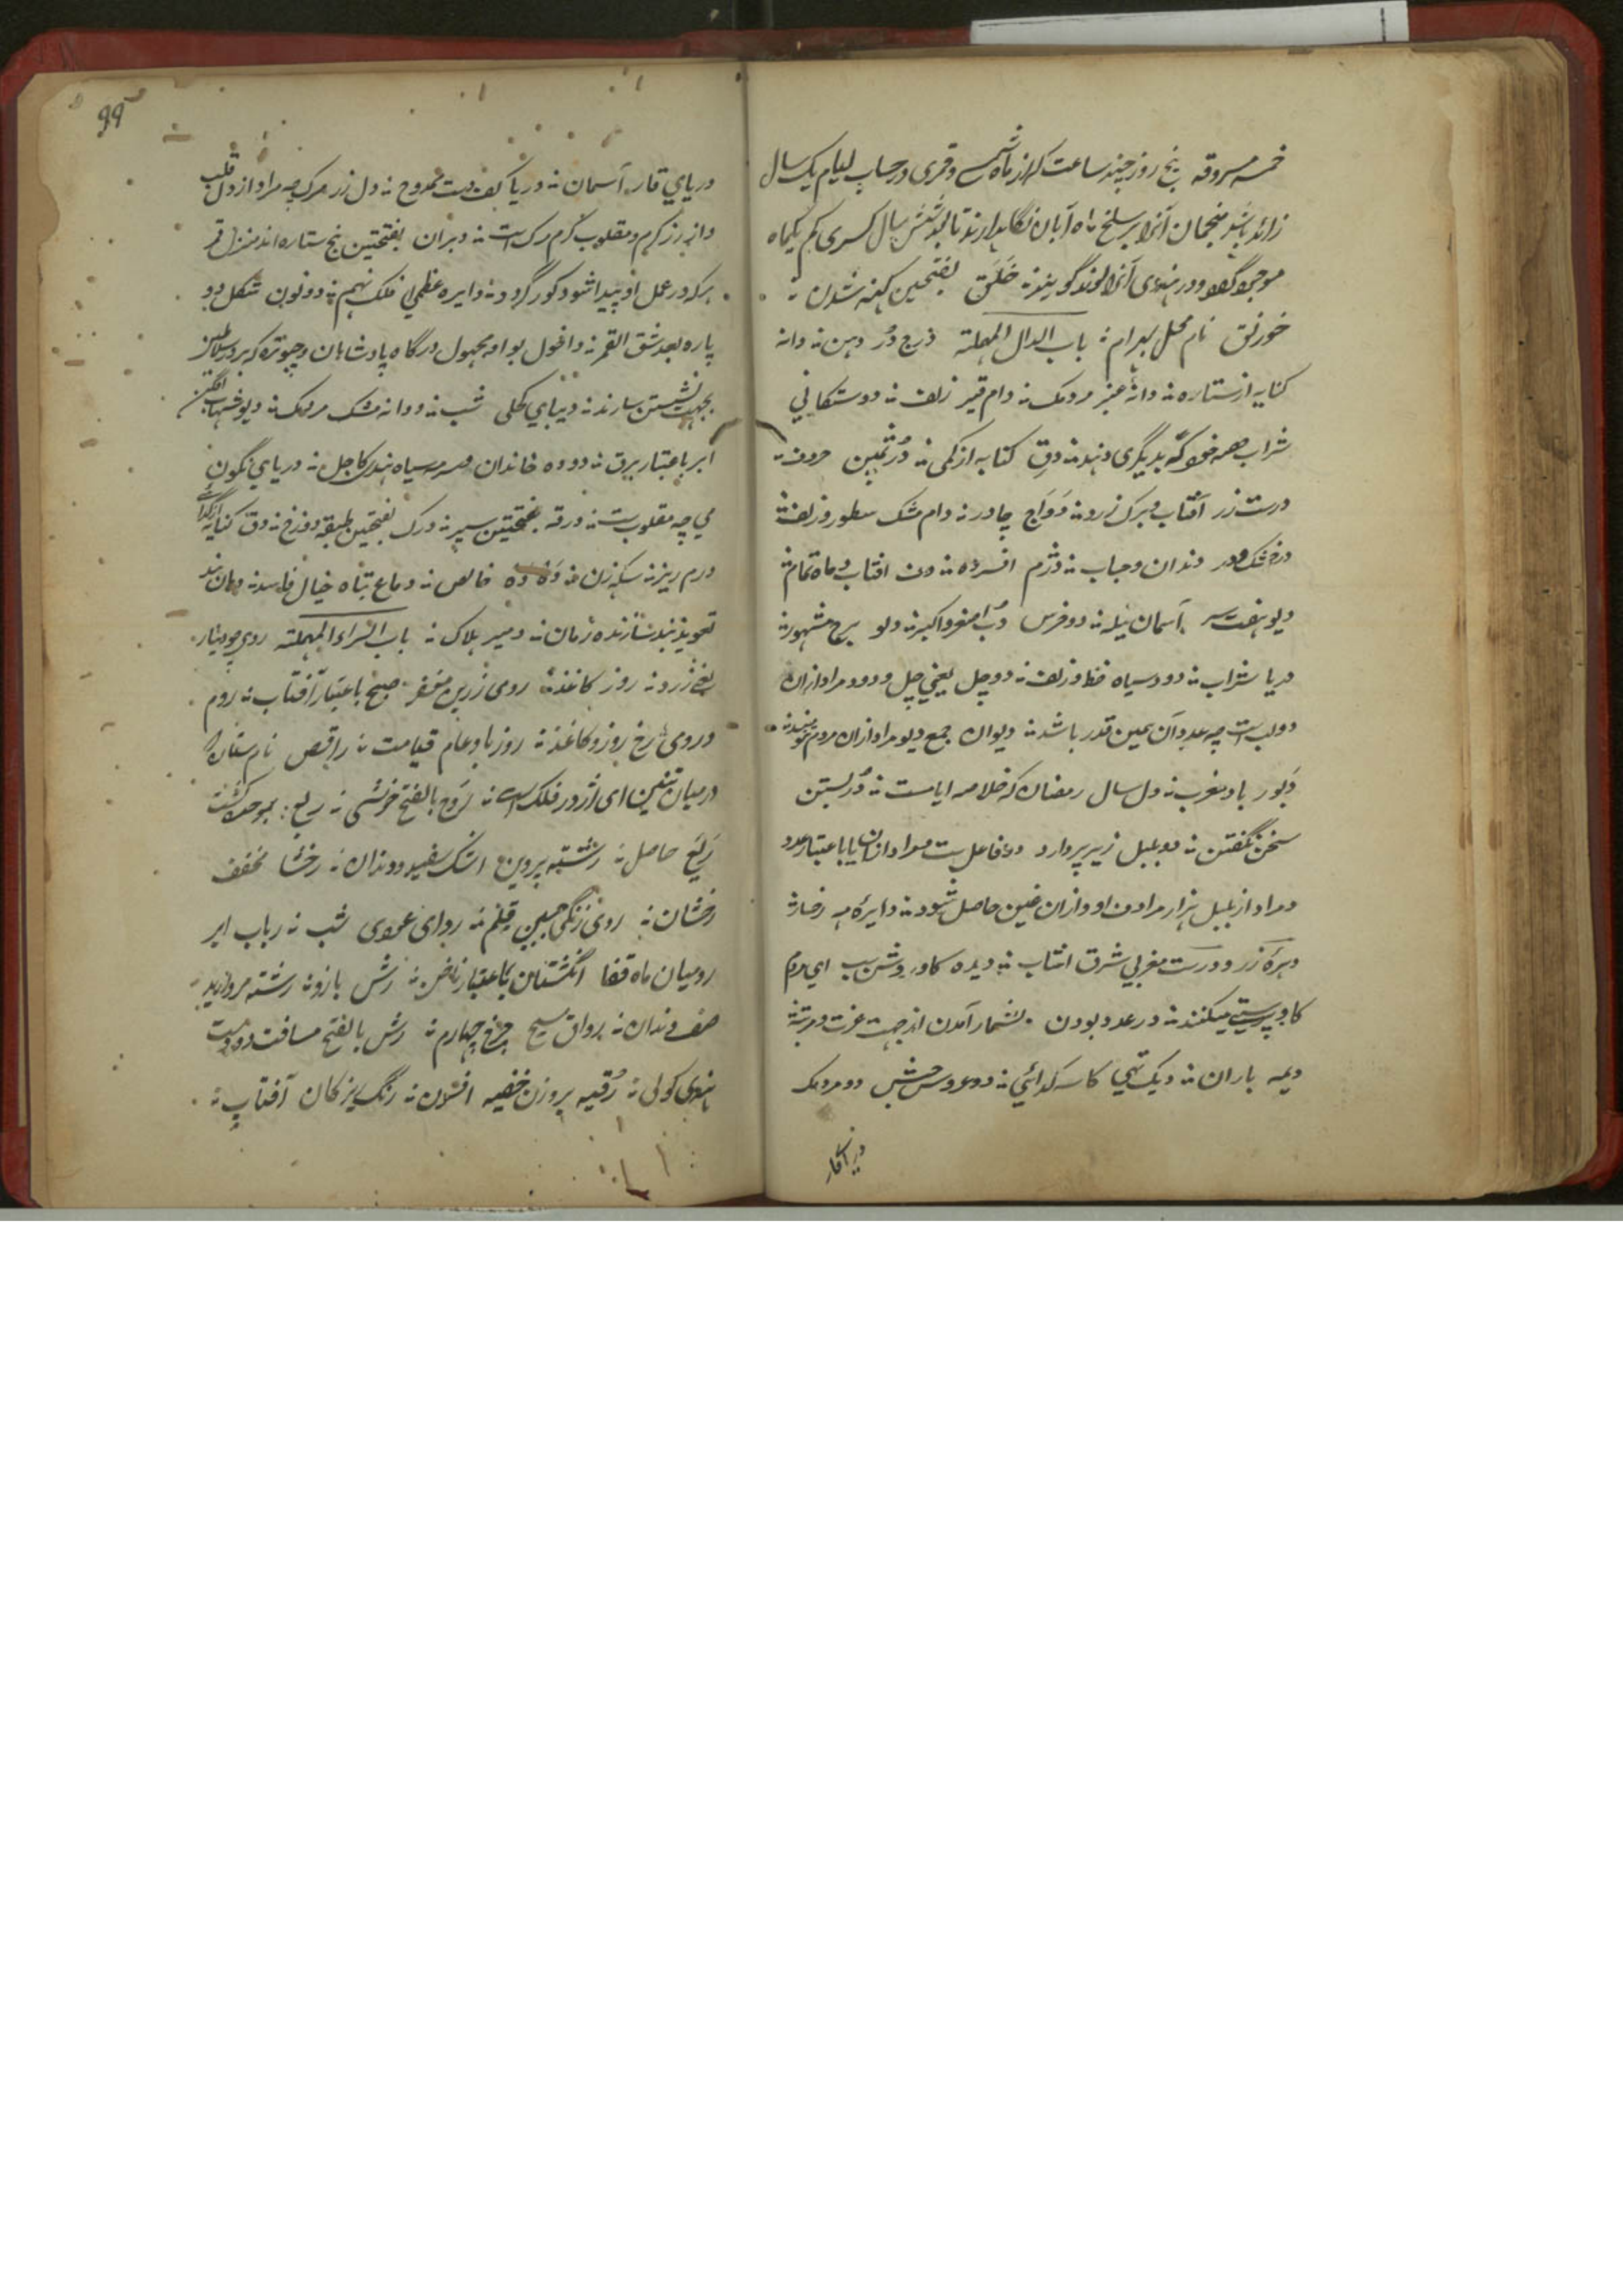 خمسه مسروقه پنج روز چند ساعت که از ماه شمسی و قمری در حساب ایام یک سال
زائد باشد منجمان آنرا بر سلخ ماه آبان نگاهدارند تا بعد شش سال کسری کم یکماه
در هندوی آنرا لوند گویند ؞ خَلَق بفتحتین کهنه شدن ؞
خورنق نام محل بهرام ؞ باب الدال المهملة درج دُر دهن ؞ دانه
کنایه از ستاره ؞ دانهٔ عنبر مردمک ؞ دام قیر زلف ؞ دوستکانی
شراب حصه خود که بدیگری دهند ؞ دق کنایه از کمی ؞ دُر ثمین حروف ؞
درست زر آفتاب و برگ زرد ؞ دَوَاج چادر ؞ دام مشک سطور و زلف ؞
دندان و حباب ؞ دژم افسرده ؞ دف افتاب و ماه تمام ؞
دیو هفت سر آسمان ؞ دو فرس دب اصغر و اکبر ؞ دلو برج مشهور ؞
دریا شراب ؞ دود سیاه خط و زلف ؞ دو چل یعنی چل و دو و مراد ازان
دولب است چه عدد آن همین قدر باشد ؞ دیوان جمع دیو مراد ازان مردم
دَبور باد مغرب ؞ دل سال رمضان که خلاصه ایامست ؞ دُر بستن
سخن نگفتن ؞ دو بلبل زیر پر دارد دو فاعل ست مراد ازان یا باعتبار عدد
و مراد از بلبل هزار مراد ازان حاصل شود ؞ دایرهٔ مه رخسار ؞
زر و درست مغربی شرق افتاب ؞ دیده کاو روشن ای مردم
کاو پرستی میکنند ؞ در عدد بودن بشمار آمدن از جهت عزت و مرتبه ؞
دیمه باران ؞ دیک تهی کاسه گدائی ؞ دو عروس حبش دو مردمک
دریای قار
99
دریای قار آسمان ؞ دریا کف دست ممدوح ؞ دل زر مرک چه مراد از دل قلب
و از زر کرم و مقلوب کرم مرک است ؞ دبران بفتحتین پنج ستاره اند منزل قمر
هر که در عمل او پیدا شود کور گردد ؞ دایره عظمی فلک نهم ؞ دو نون شکل دو
پاره بعد شق القمر ؞ داخول بواو مجهول درگاه پادشاهان و چبوتره که بر در سلاطین
بجهت نشستن سازند ؞ دیبای کحلی شب ؞ دو دانه مشک مردمک ؞ دیو شهاب افکن
ابر باعتبار برق ؞ دوده خاندان و سرمه سیاه کاجل ؞ دریای نگون
می چه مقلوب ست ؞ درقه بفتحتین سپر ؞ درک بفتحتین طبقه دوزخ ؞ دق کنایه از گدائی
درم ریز سکه زن ؞ ده ده خالص ؞ دماغ تباه خیال فاسد ؞ دهان بند
تعویذ بند سازنده زبان ؞ دمیر هلاک ؞ باب الراء المهملة روی چو دینار
یعنی زرد ؞ روز کاغذ ؞ روی زرین مغفر صبح باعتبار آفتاب ؞ روم
و روی رخ روز و کاغذ ؞ روز باد عام قیامت ؞ راقص نام ستاره
درمیان تنین ای اژدر فلک است ؞ رَوح بالفتح خوشی ؞ ربع
رَیع حاصل ؞ رشته پروین اشک سفید و دندان ؞ رخشا مخفف
رخشان ؞ روی زنگی جبین قلم ؞ ردای عودی شب ؞ رباب ابر
رومیان ماه قفا انگشتان باعتبار ناخن ؞ رش بازو ؞ رشته مروارید
صف دندان ؞ رواق مسیح چرخ چهارم ؞ رش بالفتح مسافت دو دست
هندی کولی ؞ رُقیه بر وزن خفیه افسون ؞ رنگ ریز کان آفتاب ؞